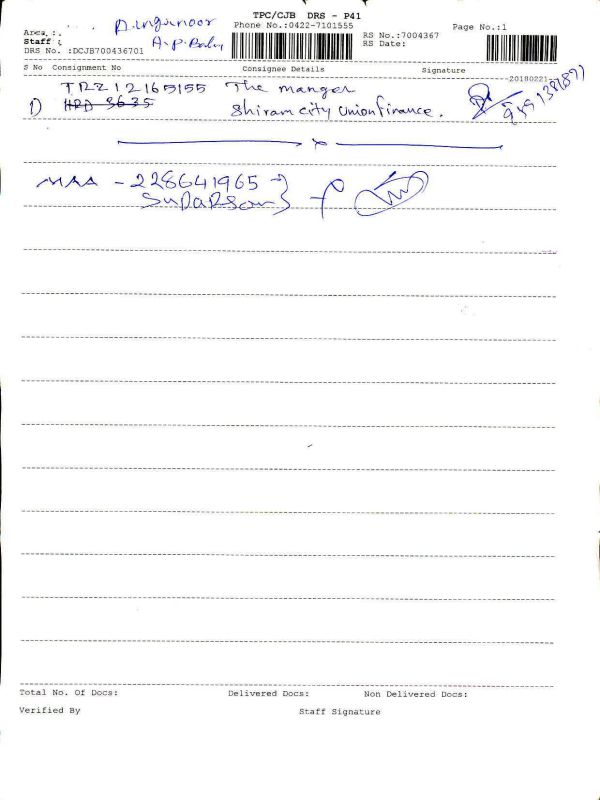 TPC/CJB DRS - P41
Phone No.:0422-7101555
Page No.:1
Area :
Staff :
A.P. Baby
RS No.:7004367
RS Date:
DRS No. :DCJB700436701
S No Consignment No Consignee Details Signature
20180221
TRZ12165155 The manger
1) HRD 3635 Shiram city Union finance.
MAA - 228641965
Total No. Of Docs: Delivered Docs: Non Delivered Docs:
Verified By Staff Signature